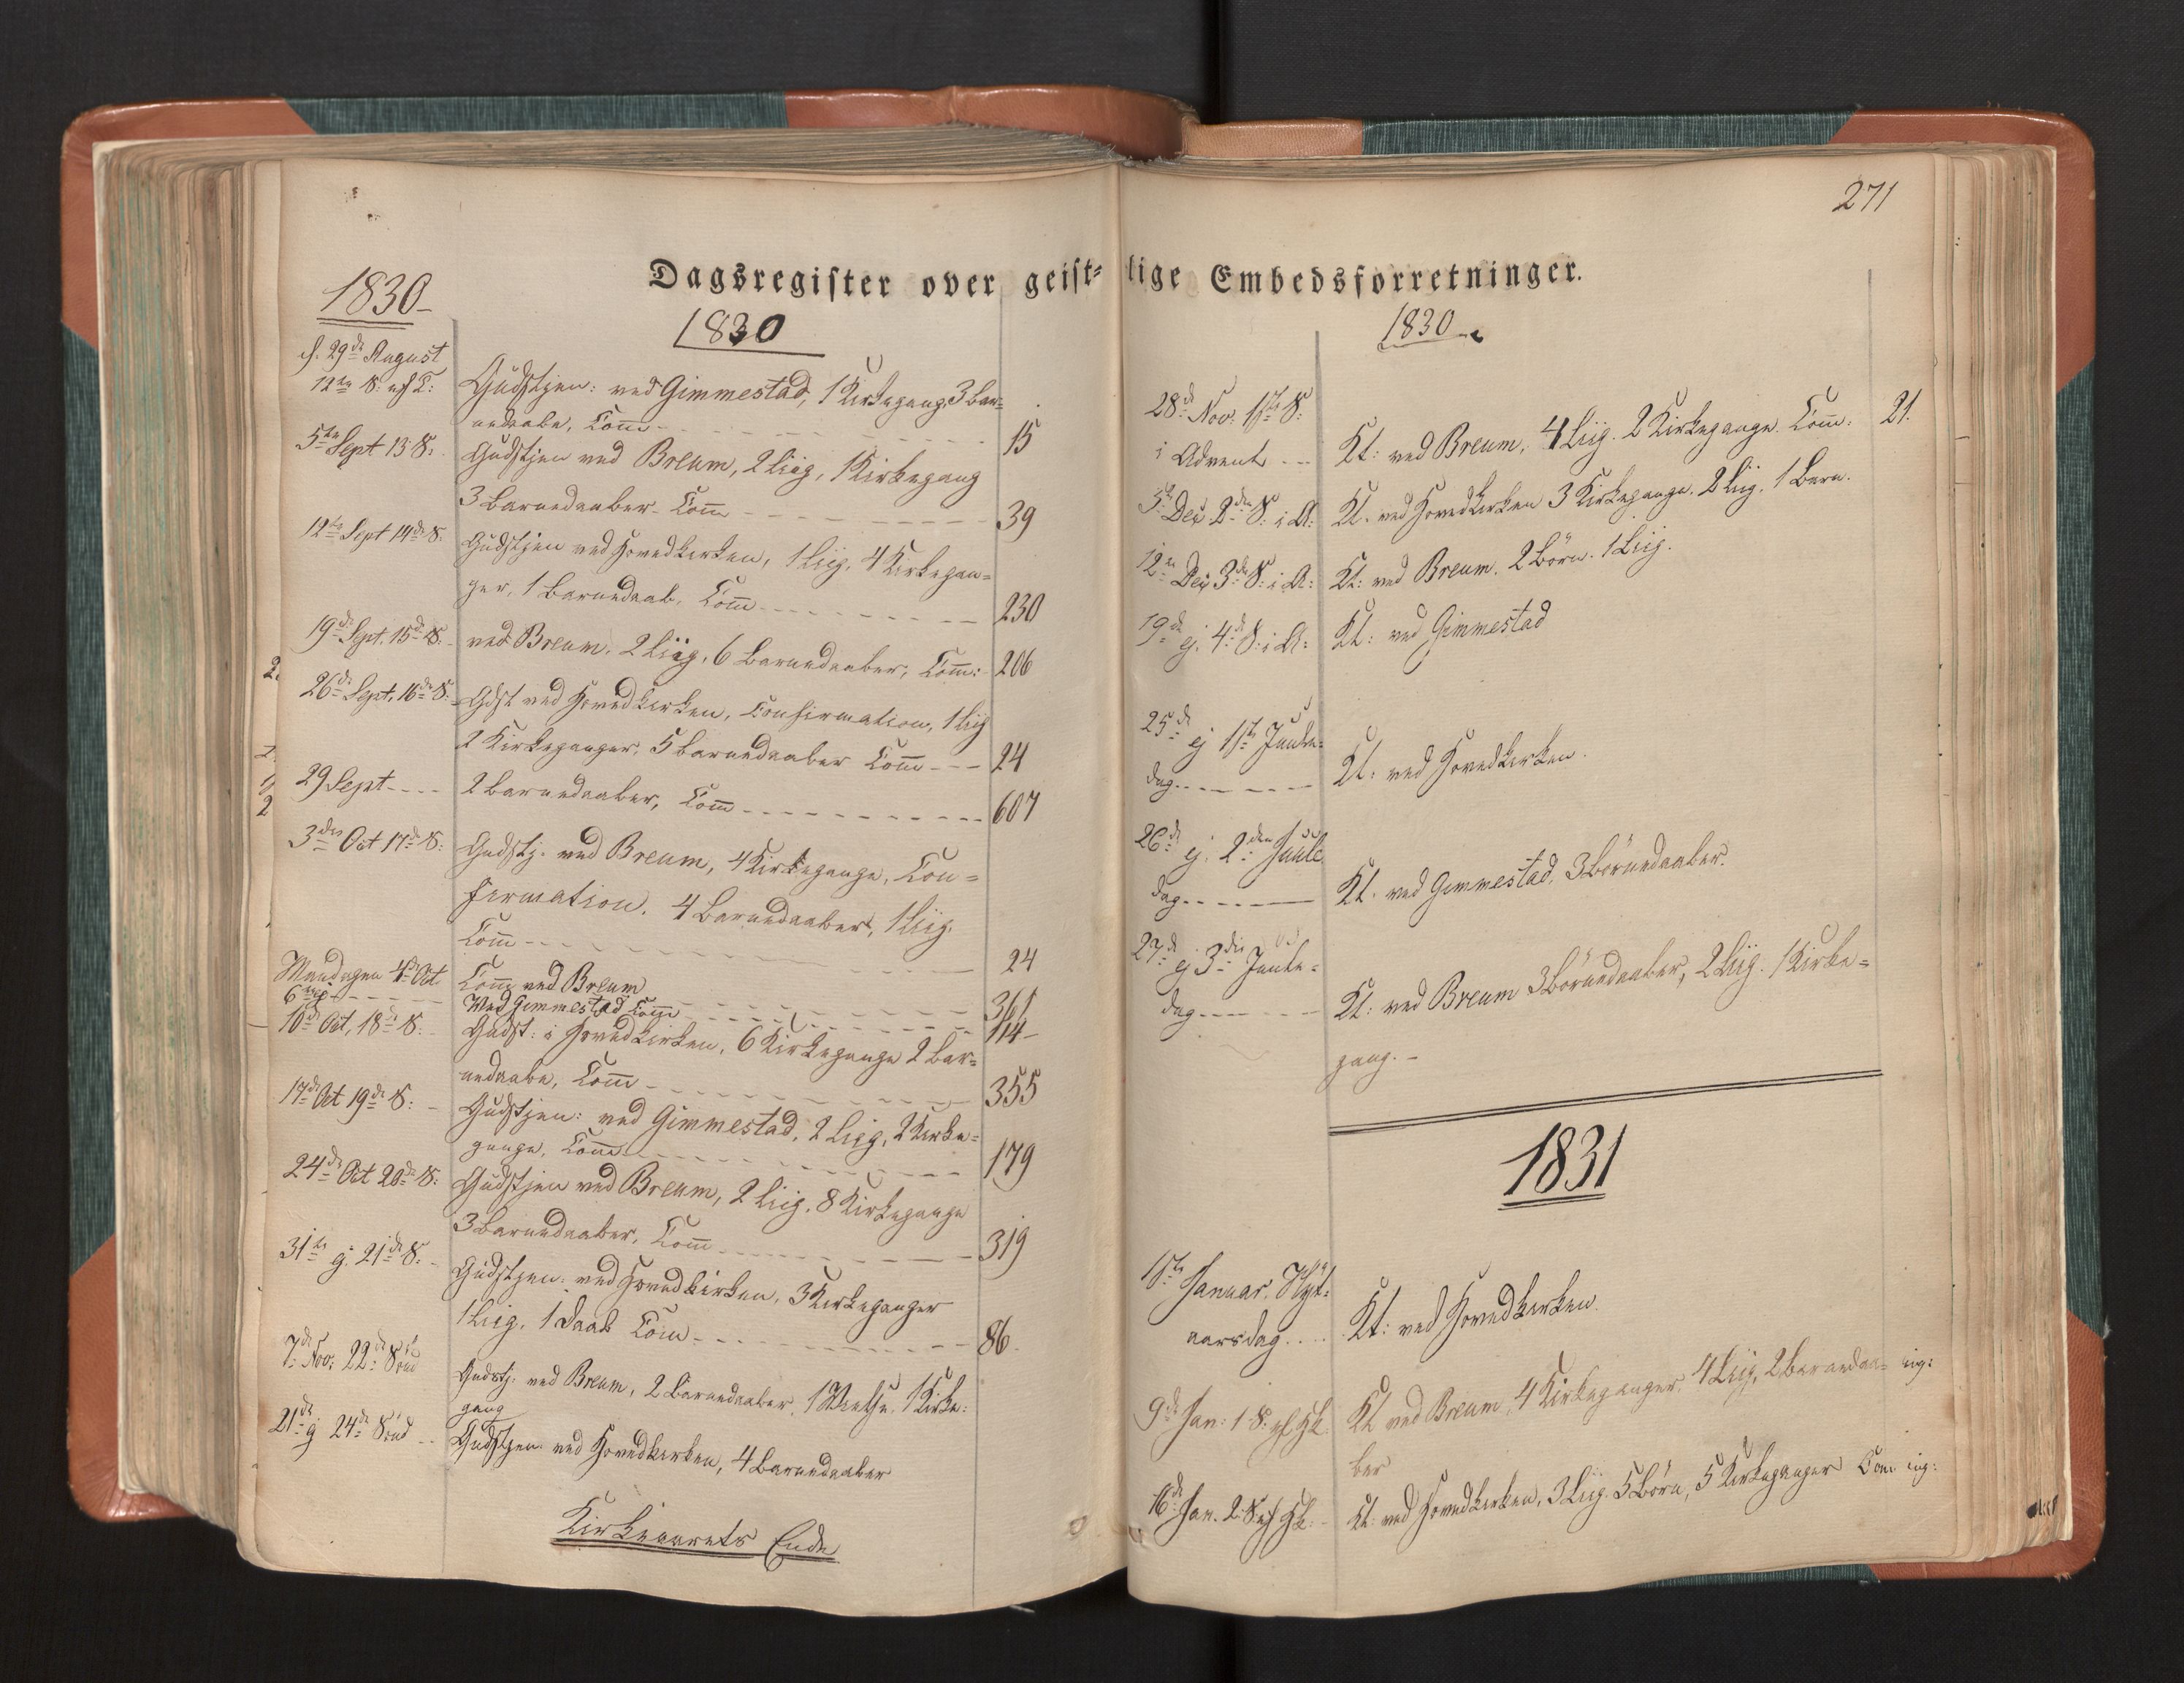 271
Dagsregister over geist-
lige Embedsforretninger.
1830-
1830
d. 29de August
12te S: ef T:
Gudstjen: ved Gimmestad, 1 Kirkegang, 3 Bar-
nedaabe, Comm - - - 15
5te Sept 13 S:
Gudstjen ved Breum, 2 Liig, 1 Kirkegang
3 Barnedaaber. Comm - - - 39
12te Sept 14de S:
Gudstjen ved Hovedkirken, 1 Liig, 4 Kirkegan-
ger, 1 Barnedaab, Comm - - - 230
19de Sept. 15de S: -
ved Breum, 2 Liig, 6 Barnedaaber, Comm: 206
26de Sept. 16de S: -
Gdst ved Hovedkirken, Confirmation, 1 Liig
2 Kirkeganger, 5 Barnedaaber Comm - - - 24
29 Sept - - - -
2 Barnedaaber, Comm - - - 607
3die Oct 17de S:
Gudstj. ved Breum, 4 Kirkegange, Con-
firmation. 4 Barnedaaber, 1 Liig.
Comm - - - 24
Mandagen 4de Oct
Comm ved Breum - - - 361
6te - - -
Ved Gimmestad Comm - - - 114-
10de Oct, 18de S: -
Gudst: i Hovedkirken, 6 Kirkegange 2 Bar-
nedaabe, Comm - - - 355
17de Oct 19de S: -
Gudstjen: ved Gimmestad, 2 Liig, 2 Kirke-
gange, Comm - - - 179
24de Oct 20de S:
Gudstjen ved Breum, 2 Liig, 8 Kirkegange
3 Barnedaaber, Comm - - - 319
31te ej. 21de S: -
Gudstjen: ved Hovedkirken, 3 Kirkeganger
1 Liig, 1 Daab Comm - - - 86.
7de Nov: 22de Sönd
Gudstj. ved Breum, 2 Barnedaaber, 1 Vielse, 1 Kirke-
gang
21de ej 24de Sönd - -
Gudstjen. ved Hovedkirken, 4 Barnedaaber
Kirkeaarets Ende
1830
28de Nov. 1ste S:
i Advent - - -
Kt: ved Breum, 4 Liig. 2 Kirkegange. Comm: 21.
5te Dec 2den S: i A:
Kt. ved Hovedkirken 3 Kirkegange. 2 Liig. 1 Barn.
12te Dec 3de S: i A:
Kt: ved Breum. 2 Börn. 1 Liig.
19de ej. 4de S: i A:
Kt: ved Gimmestad
25de ej 1ste Juule-
dag - - - -
Kt: ved Hovedkirken.
26de ej. 2den Juule
dag - - - -
Kt. ved Gimmestad, 3 Börnedaaber.
27de ej 3die Juule-
dag - - - -
Kt: ved Breum 3 Börnedaaber, 2 Liig. 1 Kirke-
gang. -
1831
1ste Januar. Nyt-
aarsdag - - - -
Kt: ved Hovedkirken.
9de Jan: 1 S: ef HK.
Kt ved Breum, 4 Kirkeganger. 4 Liig, 2 Barnedaa- ing:
ber
16de Jan. 2. S. ef HK. -
Kt: ved Hovedkirken, 3 Liig. 5 Börn, 5 Kirkeganger Com ing: